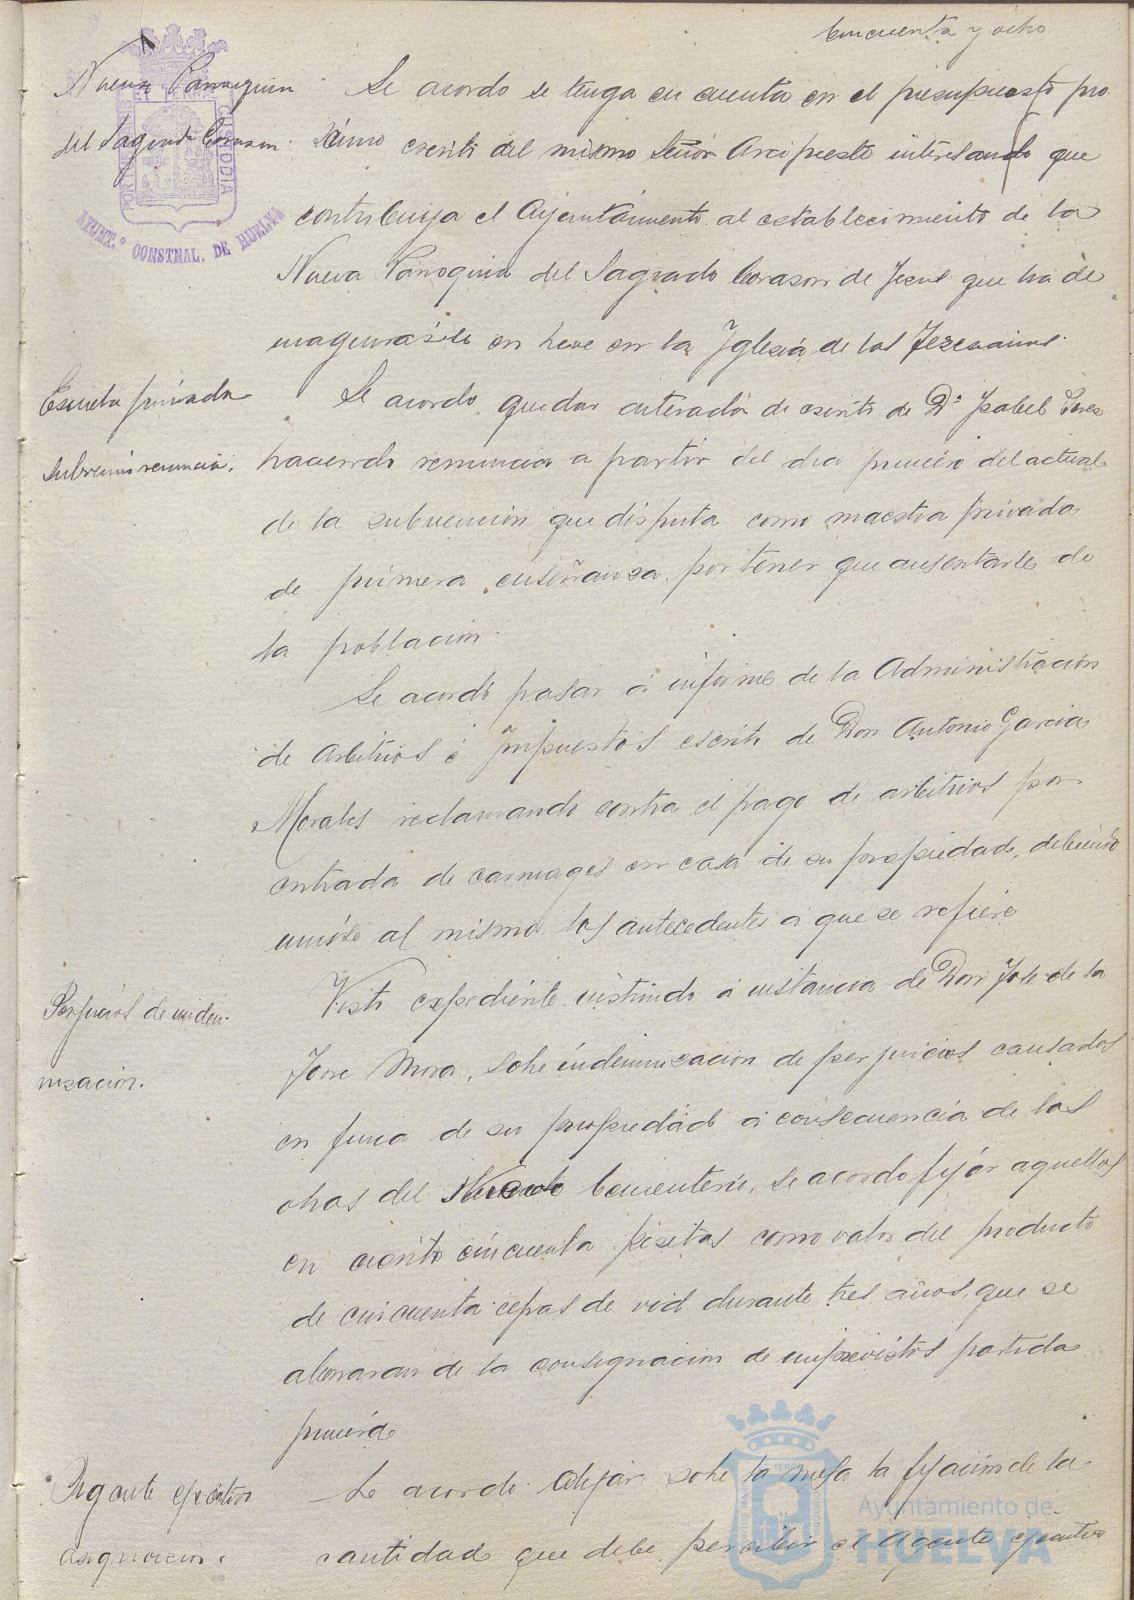 Cincuenta y ocho
Nueva Parroquia
del Sagrado Corazon.
PORTUS CUSTODIA
AYUNT.º CONSTNAL. DE HUELVA
Se acordo se tenga en cuenta en el presupuesto pro
ximo escrito del mismo Señor Arcipreste interesando que
contribuya el Ayuntamiento al establecimiento de la
Nueva Parroquia del Sagrado Corazon de Jesus que ha de
inagurarse en breve en la Iglesia de los
Escuela privada
subvencion renuncia.
Se acordo quedar enterada de escrito de Dª Isabel Perez
haciendo renuncia a partir del dia primero del actual
de la subvencion que disfruta como maestra privada
de primera enseñanza por tener que ausentarse de
la poblacion.
Se acordó pasar á informe de la Administracion
de Arbitrios é Impuestos escrito de Don Antonio Garcia
Morales reclamando contra el pago de arbitrios por
entrada de carruages en casa de su propiedad, debiendo
unirse al mismo los antecedentes á que se refiere
Perjuicios de indem-
nizacion.
Visto expediente instruido á instancia de Don Jose de la
Torre Mora, sobre indemnizacion de perjuicios causados
en finca de su propiedad á consecuencia de las
obras del Nuevo Cementerio, se acordo fijar aquellos
en ciento cincuenta pesetas como valor del producto
de cincuenta cepas de vid durante tres años, que se
abonaran de la consignacion de imprevistos partida
primera
Agente ejecutivo
asignacion.
Se acordo dejar sobre la mesa la fijacion de la
cantidad que debe percibir el Agente ejecutivo
Ayuntamiento de
HUELVA